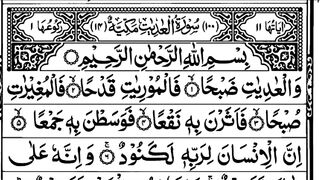 اٰيَاتُهَا ١١ (١٠٠) سُوْرَةُ الْعٰدِيٰتِ مَكِّيَّةٌ (١٤) رُكُوْعُهَا ١
بِسْمِ اللّٰهِ الرَّحْمٰنِ الرَّحِيْمِ
وَالْعٰدِيٰتِ ضَبْحًا ۝١ فَالْمُوْرِيٰتِ قَدْحًا ۝٢ فَالْمُغِيْرٰتِ
صُبْحًا ۝٣ فَاَثَرْنَ بِهٖ نَقْعًا ۝٤ فَوَسَطْنَ بِهٖ جَمْعًا ۝٥
اِنَّ الْاِنْسَانَ لِرَبِّهٖ لَكَنُوْدٌ ۝٦ وَاِنَّهٗ عَلٰى